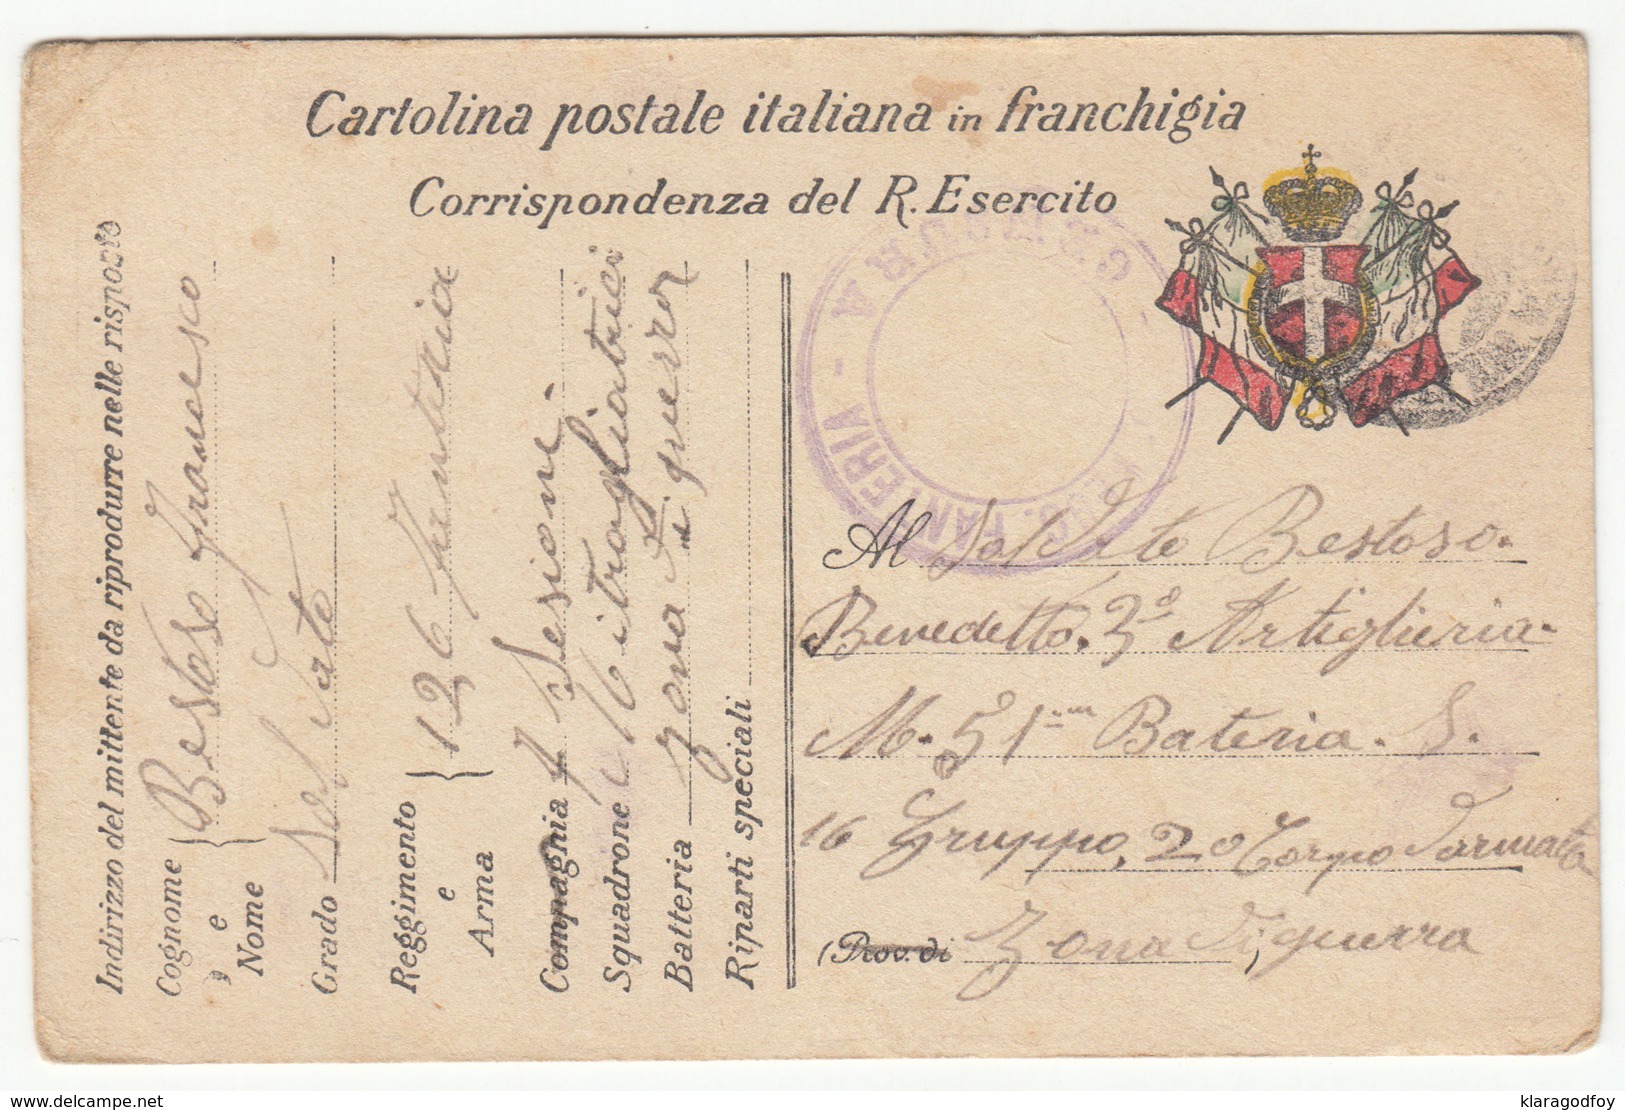 Cartolina postale italiana in franchigia
Corrispondenza del R. Esercito
Indirizzo del mittente da riprodurre nelle risposte
Cognome
e
Nome
Bestoso Francesco
Grado Soldato
Reggimento
e
Arma
126 Fanteria
Compagnia 7 Sesione.
Squadrone Mitragliatrici
Batteria Zona di guerra
Riparti speciali
REGG. FANTERIA
Al Soldato Bestoso.
Benedetto. 3° Artiglieria.
M. 51 Bateria. S.
16 Gruppo, 20 Corpo Darmata
(Prov. di Zona di guerra
delcampe.net
klaragodfoy